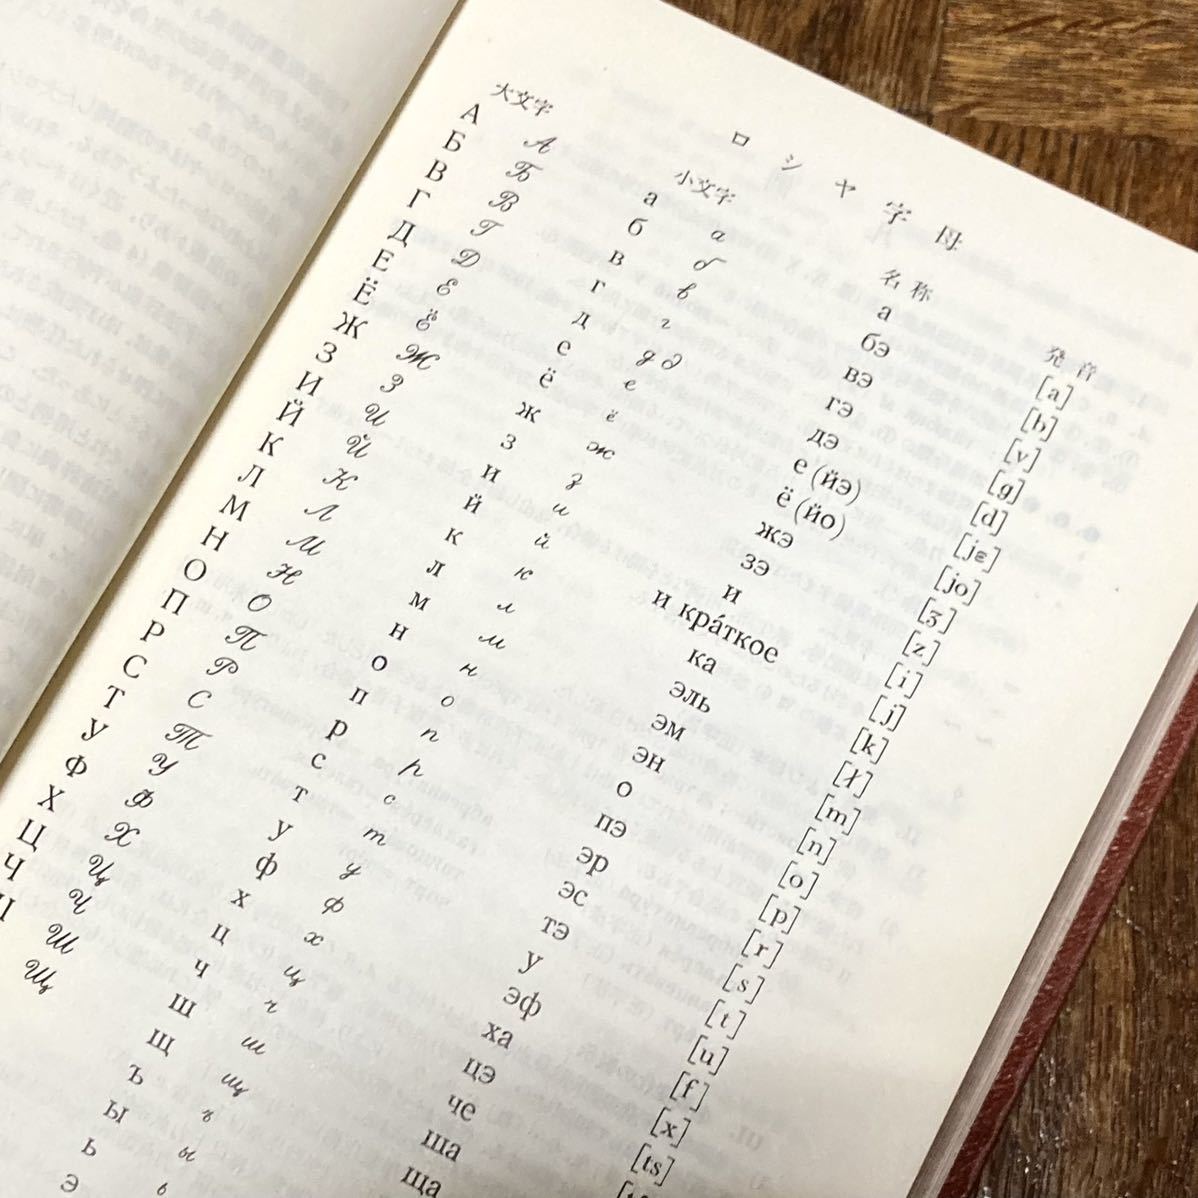 ロシヤ字母
大文字 小文字 名称 発音
А А а а а [a]
Б Б б б бэ [b]
В В в в вэ [v]
Г Г г г гэ [g]
Д Д д д д дэ [d]
Е Е е е е (йэ) [jɛ]
Ё Ё ё ё ё (йо) [jo]
Ж Ж ж ж жэ [ʒ]
З З з з зэ [z]
И И и и и [i]
Й Й й й и кра́ткое [j]
К К к к ка [k]
Л Л л л эль [ł]
М М м м эм [m]
Н Н н н эн [n]
О О о о о [o]
П П п п пэ [p]
Р Р р р эр [r]
С С с с эс [s]
Т Т т т тэ [t]
У У у у у [u]
Ф Ф ф ф эф [f]
Х Х х х ха [x]
Ц Ц ц ц цэ [ts]
Ч Ч ч ч че
Ш ш ш ша
Щ щ щ ща
ъ ъ
ы ы
ь ь
э